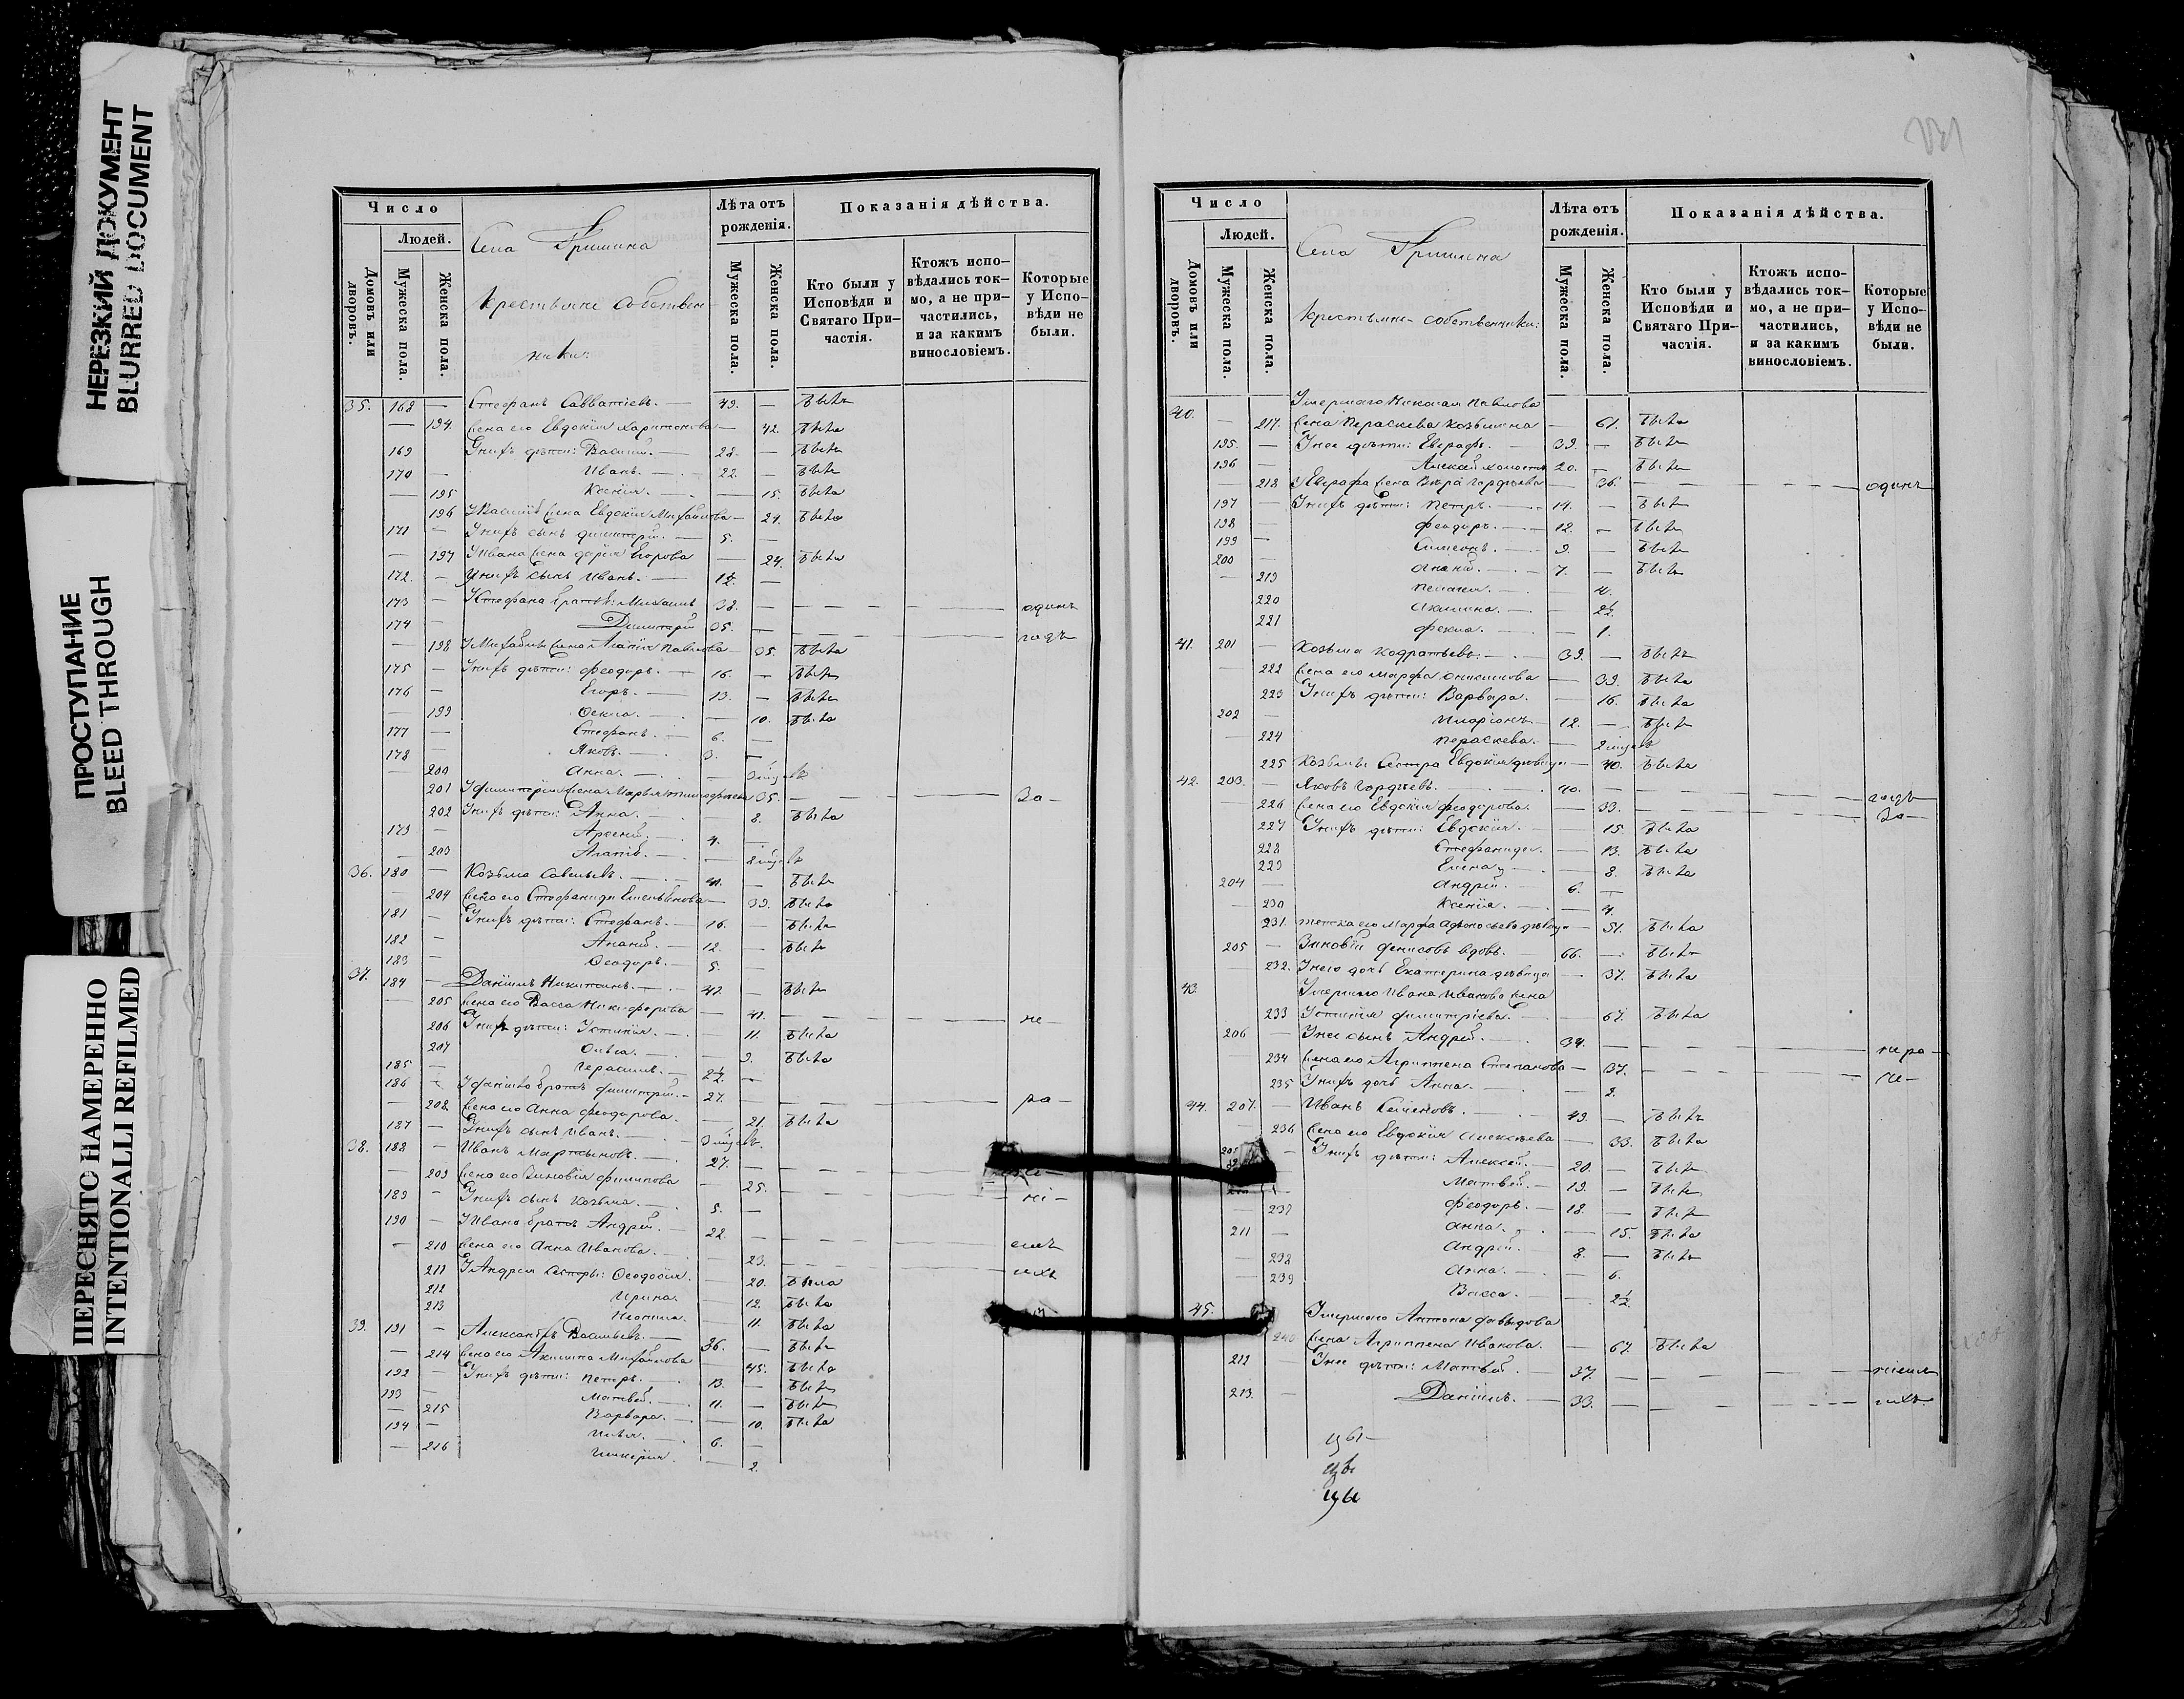 НЕРЕЗКИЙ ДОКУМЕНТ
BLURRED DOCUMENT
ПРОСТУПАНИЕ
BLEED THROUGH
ПЕРЕСНЯТО НАМЕРЕННО
INTENTIONALLI REFILMED
Число
Людей.
Домовъ или дворовъ.
Мужеска пола.
Женска пола.
Села Гришина
Крестьяне собствен-
ники:
Лѣта отъ рожденія.
Мужеска пола.
Женска пола.
Показанія дѣйства.
Кто были у Исповѣди и Святаго Причастія.
Ктожъ исповѣдались токмо, а не причастились, и за какимъ винословіемъ.
Которые у Исповѣди не были.
35. 168 — Стефанъ Савватіевъ. — 49. — былъ
— 194. Жена его Евдокія Харитонова — 42. была
169 У нихъ дѣти: Василій. — 28. — былъ
170 — Иванъ. — 22. — былъ
— 195 Ксенія. — 15. была
196 У Василія жена Евдокія Михайлова — 24. была
171 — У нихъ сынъ Димитрій. — 5. —
— 197 У Ивана жена Дарія Егорова — 24. была
172. — У нихъ сынъ Иванъ. — 1½. —
173 — У Стефана братья: Михаилъ 38. — одинъ
174 — Димитрій 35. — годъ
— 198 У Михаила жена Павлова — 35. была
175 — У нихъ дѣти: Феодоръ. — 16. — былъ
176 — Егоръ. — 13. — былъ
— 199 Фекла. — 10. была
177 — Стефанъ. — 6. —
178 — Яковъ. — 3. —
— 200 Анна. —
201 У Димитрія жена Марья 35. — за-
202 У нихъ дѣти: Анна. — 8. была
179 — Арсеній. — 4. —
— 203
36. 180 — Козьма Савельевъ. — 41. — былъ
— 204 Жена его Стефанида Емельянова — 39. была
181 — У нихъ дѣти: Стефанъ. — 16. — былъ
182 — Ананій. — 12. — былъ
183 — Феодоръ. — 5. —
37. 184 — Даніилъ Никитинъ. — 42. — былъ
— 205 Жена его Васса Никифорова — 41. — не
206 У нихъ дѣти: Устинія. — 11. была
207 Ольга. — 9. была
185 — Герасимъ. — 2½. —
186 — У Даніила братъ Димитрій. — 27. — ра-
— 208. Жена его Анна Феодорова. — 21. была
187 — У нихъ сынъ Иванъ. —
38. 188 — Иванъ Мартыновъ. — 27. —
— 209 Жена его Зиновія Филипова — 25. — ні-
189 — У нихъ сынъ Козьма. — 5. —
190 — У Ивана братъ Андрей. — 22. —
— 210 Жена его Анна Иванова. — 23. —
211 У Андрея сестры: Феодосія. 20. была
212 Ирина. 12. была
213 11. была
39. 191 — Александръ Васильевъ. — 36. — былъ
— 214 Жена его Акилина Михайлова — 45. была
192 — У нихъ дѣти: Петръ. — 13. — былъ
193 — Матвей. — 11. — былъ
— 215 Варвара. — 10. была
194 — Илья. — 6. —
— 216 Гликерія. — 2.
Число
Людей.
Домовъ или дворовъ.
Мужеска пола.
Женска пола.
Села Гришина
Крестьяне-собственники:
Лѣта отъ рожденія.
Мужеска пола.
Женска пола.
Показанія дѣйства.
Кто были у Исповѣди и Святаго Причастія.
Ктожъ исповѣдались токмо, а не причастились, и за какимъ винословіемъ.
Которые у Исповѣди не были.
40. Умершаго Николая Павлова
— 217. жена Параскева Козьмина — 61. была
195 — У нее дѣти: Евграфъ. — 39. — былъ
196 — Алексей холостъ 20. — былъ
— 218 У Евграфа жена Вѣра Гордѣева — 36. — одинъ
197 — У нихъ дѣти: Петръ. — 14. — былъ
198 — Феодоръ. — 12. — былъ
199 — Симеонъ. — 9. — былъ
200 — Ананій. — 7. — былъ
— 219 Пелагея. — 4.
220 Акилина. — 2½
221 Фекла. — 1.
41. 201 — Козьма Кодратьевъ. — 39. — былъ
— 222 Жена его Марфа Оникимова — 39. была
223 У нихъ дѣти: Варвара. — 16. была
202 — Иларіонъ. — 12. — былъ
— 224 Параскева. —
225 Козьмы сестра Евдокія дѣвица — 40. была
42. 203. — Яковъ Гордѣевъ. — 40. — годъ
— 226 Жена его Евдокія Феодорова. — 39. — за-
227 У нихъ дѣти: Евдокія. — 15. была
228 Стефанида. — 13. была
229 Елена — 8. была
204 — Андрей. — 6. —
— 230 Ксенія. — 4.
231. Тетка его Марфа дѣвица — 51. была
205 — Зиновій Денисовъ вдовъ. — 66. — былъ
— 232. У него дочь Екатерина дѣвица — 37. была
43. Умершаго Ивана Иванова жена
233 Устинія Димитріева. — 67. была
206 — У нее сынъ Андрей. — 34. — нера-
— 234 Жена его Агриппена Степанова — 37. —
235 У нихъ дочь Анна. — 2.
44. 207. — Иванъ Семеновъ. — 49. — былъ
— 236 Жена его Евдокія Алексѣева — 33. была
— У нихъ дѣти: Алексей. — 20. — былъ
Матвей. — 19. — былъ
237 Феодоръ. — 18. — былъ
211 — Анна. — 15. была
Андрей. — 8. — былъ
— 238 Анна. — 6.
— 239 Васса. — 2½
45. Умершаго Антона Давыдова
240 жена Агриппена Иванова. — 67. была
212 — У нее дѣти: Матвей. — 37. —
213. — Даніилъ. — 33. —